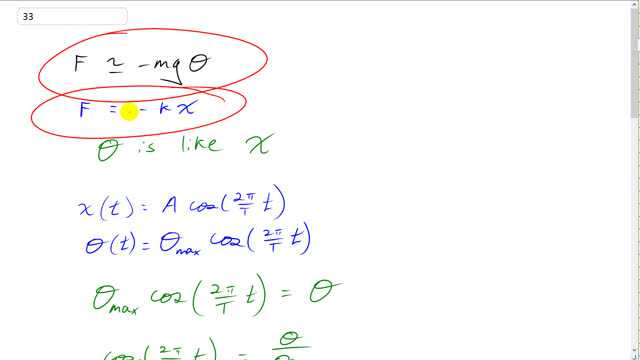 33
F ≃ -mgθ
F = - kx
θ is like x
x(t) = A cos(2π/T t)
θ(t) = θmax cos(2π/T t)
θmax cos(2π/T t) = θ
cos(2π/T t) = θ